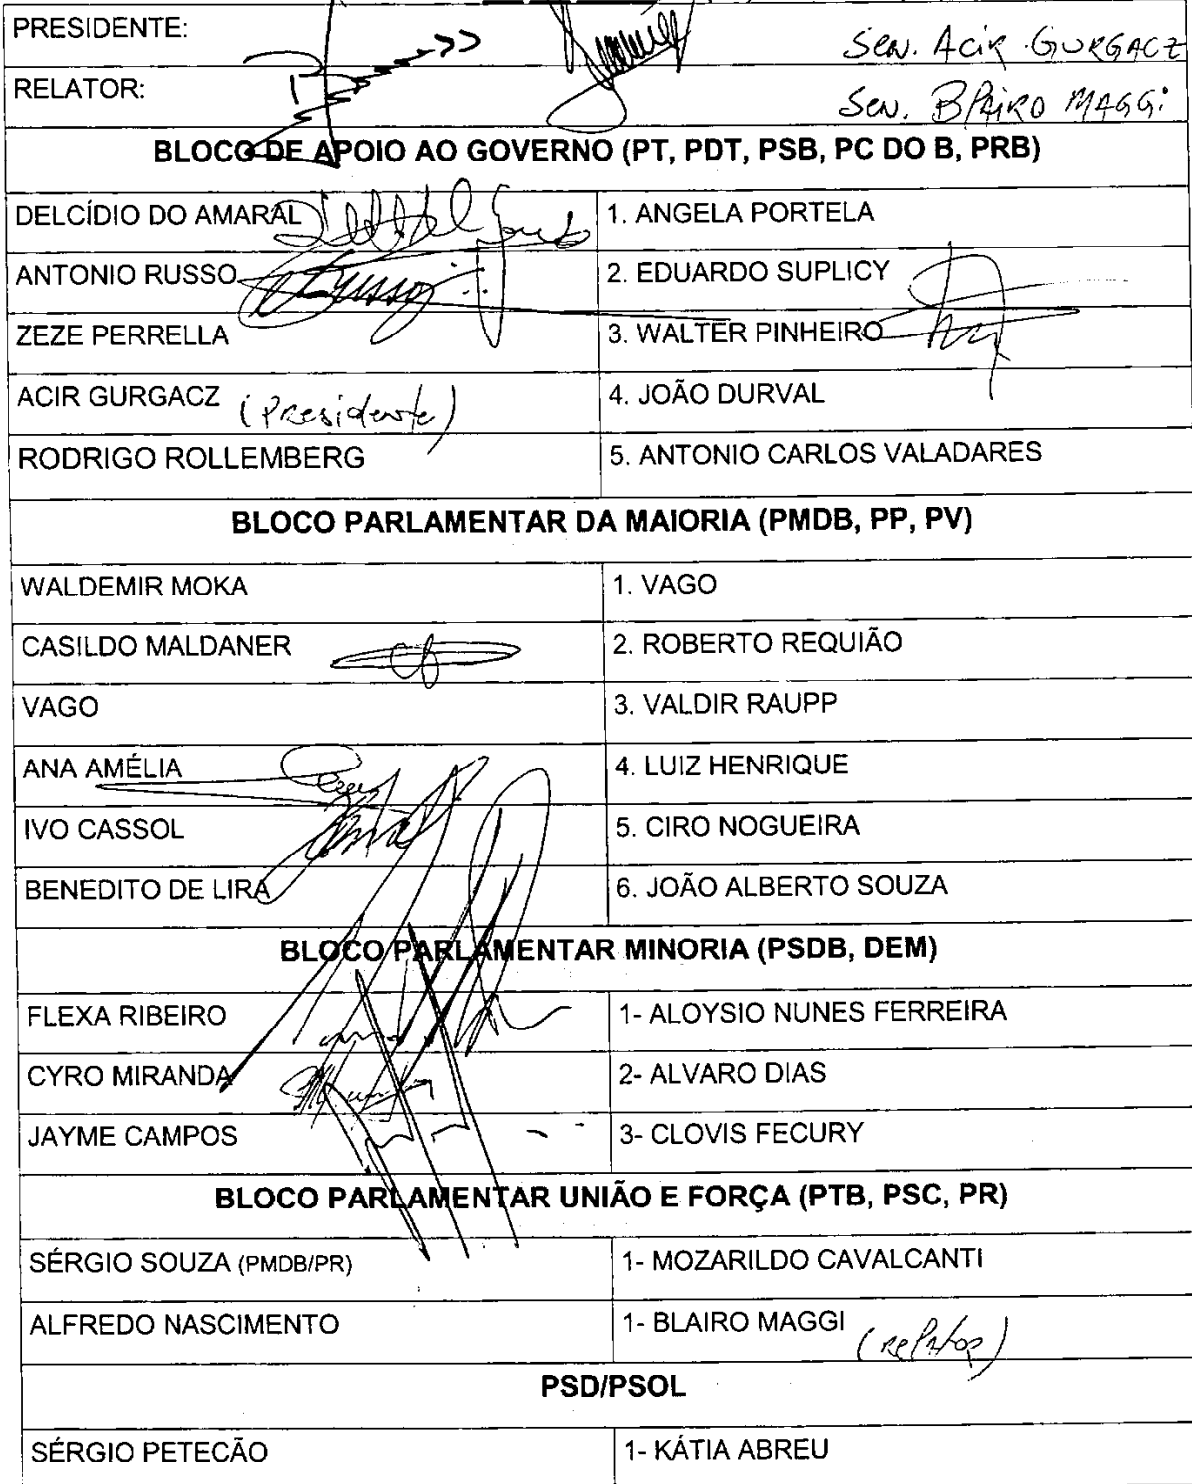 PRESIDENTE: Sen. Acir Gurgacz
RELATOR: Sen. Blairo Maggi
BLOCO DE APOIO AO GOVERNO (PT, PDT, PSB, PC DO B, PRB)
DELCÍDIO DO AMARAL 1. ANGELA PORTELA
ANTONIO RUSSO 2. EDUARDO SUPLICY
ZEZE PERRELLA 3. WALTER PINHEIRO
ACIR GURGACZ (Presidente) 4. JOÃO DURVAL
RODRIGO ROLLEMBERG 5. ANTONIO CARLOS VALADARES
BLOCO PARLAMENTAR DA MAIORIA (PMDB, PP, PV)
WALDEMIR MOKA 1. VAGO
CASILDO MALDANER 2. ROBERTO REQUIÃO
VAGO 3. VALDIR RAUPP
ANA AMÉLIA 4. LUIZ HENRIQUE
IVO CASSOL 5. CIRO NOGUEIRA
BENEDITO DE LIRA 6. JOÃO ALBERTO SOUZA
BLOCO PARLAMENTAR MINORIA (PSDB, DEM)
FLEXA RIBEIRO 1- ALOYSIO NUNES FERREIRA
CYRO MIRANDA 2- ALVARO DIAS
JAYME CAMPOS 3- CLOVIS FECURY
BLOCO PARLAMENTAR UNIÃO E FORÇA (PTB, PSC, PR)
SÉRGIO SOUZA (PMDB/PR) 1- MOZARILDO CAVALCANTI
ALFREDO NASCIMENTO 1- BLAIRO MAGGI (relator)
PSD/PSOL
SÉRGIO PETECÃO 1- KÁTIA ABREU